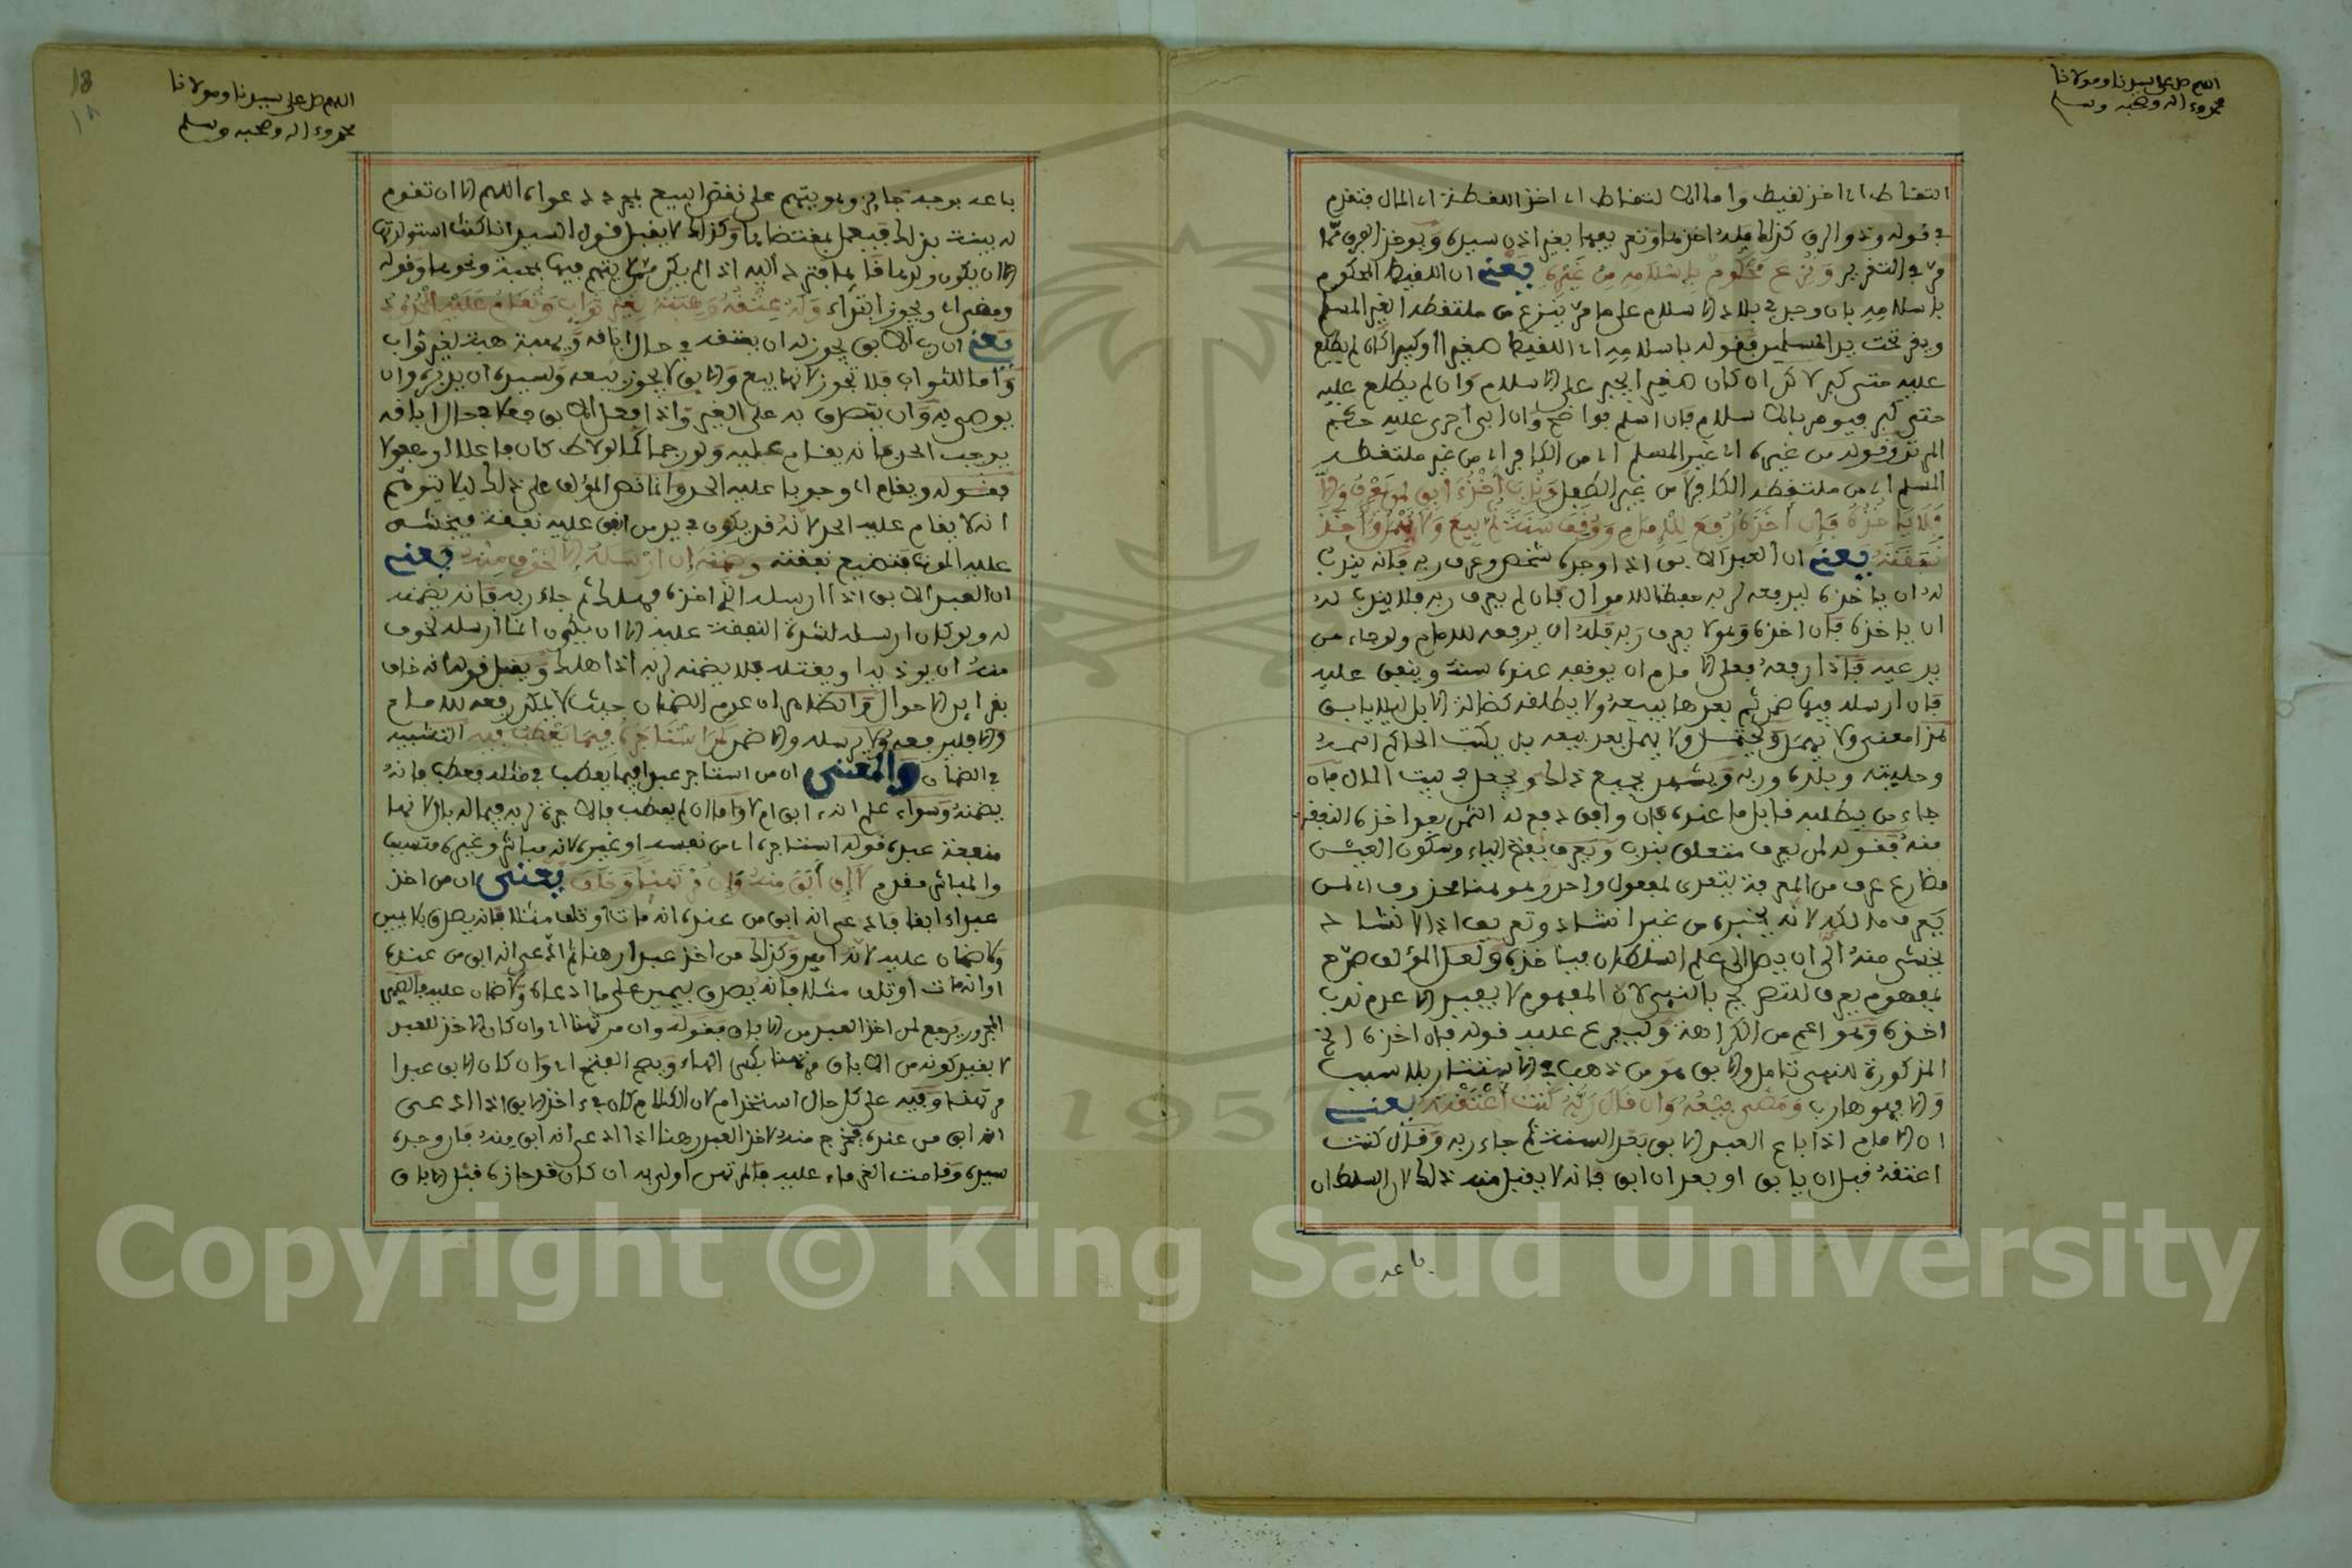 اللهم صل على سيدنا ومولانا
محمد وءاله وصحبه وسلم
التقاط اي اخذ لقيط واما الالتقاط اي اخذ اللقطة اي المال فتقدم
في قوله وذو الرق كذلك فله اخذها وتعريفها بغير اذن سيده ويوخذ الفرق مما
مر في التقرير ونزع محكوم باسلامه من غيره يعني ان اللقيط المحكوم
باسلامه بان وجد في بلاد الاسلام على ما مر ينزع من ملتقطه الغير المسلم
ويقر تحت يد المسلمين فقوله باسلامه اي اللقيط صغيرا او كبيرا كان لم يطلع
عليه حتى كبر لاكن ان كان صغيرا يجبر على الاسلام وان لم يطلع عليه
حتى كبر فيومر بالاسلام فان اسلم فواضح وان ابى اجرى عليه حكم
المرتد وقوله من غيره اي غير المسلم اي من الكافر اي من غير ملتقطه
المسلم اي من ملتقطه الكافر لا من غير الطفل وندب اخذ ءابق لمن يعرف والا
فلا ياخذه فان اخذه رفع للامام ووقف سنة ثم بيع ولا يهمل واخذ
نفقته يعني ان العبد الابق اذا وجده شخص وعرف ربه فانه يندب
له ان ياخذه ليدفعه لربه حفظا للاموال فان لم يعرف ربه فلا يندب له
ان ياخذه فان اخذه وهو لا يعرف ربه فله ان يرفعه للامام ولو جاء من
بد عيه فاذا رفعه فعلى الامام ان يوقفه عنده سنة وينفق عليه
فان ارسله فيها ضمن ثم بعدها يبيعه ولا يطلقه كضالة الابل ليلا يابق
هذا معنى ولا يهمل بعد بيعه بل يكتب الحاكم اسمه
وحليته وبلده وربه ويشهد بجميع ذلك ويجعل في بيت المال فان
جاء من يطلبه قابل ما عنده فان وافق دفع له الثمن بعد اخذه النفقة
منه فقوله لمن يعرف متعلق بندب ويعرف بفتح الياء وسكون العين
مضارع عرف من المعرفة يتعدى لمفعول واحد وهو هنا محذوف اي لمن
يعرف مالكه لانه يخبره من غير انشاد وتعريف اذ الانشاد
يخشى منه ان يصل الى علم السلطان فياخذه ولعل المؤلف صرح
بمفهوم يعرف للتصريح بالنهي لان المفهوم لا يفيد الا عدم ندب
اخذه وهو اعم من الكراهة وليفرع عليه قوله فان اخذه الخ
المذكورة للنهي تامل والابق هو من ذهب في الاستتار بلا سبب
والا فهو هارب ومضى بيعه وان قال ربه كنت اعتقته يعني
ان الامام اذا باع العبد الابق بعد السنة ثم جاء ربه وقال كنت
اعتقته قبل ان يابق او بعد ان ابق فانه لا يقبل منه ذلك لان السلطان
باعه
18
١٨
اللهم صل على سيدنا ومولانا
محمد وءاله وصحبه وسلم
باعه بوجه جائز وهو يتهم على نقض البيع بمجرد دعواه اللهم الا ان تقوم
له بينة بذلك فيعمل بمقتضاها وكذلك لا يقبل قول السيد انا كنت استولدتها
الا ان يكون ولدها قائما فترد اليه اذا لم يكن ممن يتهم فيها بمحبة ونحوها وقوله
ومضى اي ويجوز ابتداء وله عتقه وهبته لغير ثواب وتقام عليه الحدود
يعني ان رب الابق يجوز له ان يعتقه في حال اباقه ويهبه هبة لغير ثواب
واما للثواب فلا تجوز لانها بيع والابق لا يجوز بيعه ولسيده ان يدبره وان
يوصي به وان يتصدق به على الغير واذا فعل الابق فعلا في حال اباقه
يوجب الحد فانه يقام عليه ولو رجما كما لو لاط كان فاعلا او مفعولا
فقوله ويقام اي وجوبا عليه الحد وانما نص المؤلف على ذلك ليلا يتوهم
انه لا يقام عليه الحد لانه قد يكون في يد من انفق عليه نفقة فيخشى
عليه الموت فتضيع نفقته وضمنه ان ارسله الا لخوف منه يعني
ان العبد الابق اذا ارسله الذي اخذه فهلك ثم جاء ربه فانه يضمنه
له ولو كان ارسله لشدة النفقة عليه الا ان يكون انما ارسله لخوف
منه ان يوذيه او يقتله فلا يضمنه لربه اذا هلك ويقبل قوله انه خاف
بقراين الاحوال والظاهر ان عدم الضمان حيث لا يمكن رفعه للامام
والا فليرفعه ولا يرسله والا ضمن كمن استاجره فيما يعطب فيه التشبيه
في الضمان والمعنى ان من استاجر عبدا فيما يعطب في مثله فعطب فانه
يضمنه وسواء علم انه ءابق ام لا واما ان لم يعطب فالاجرة لربه فيما له بال لانها
منفعة عبده قوله استاجره اي من نفسه او غيره لانه مباشر وغيره متسبب
والمباشر مقدم لا ان ابق منه وان مرتهنا وحلف يعني ان من اخذ
عبدا ءابقا فادعى انه ابق من عنده او انه مات او تلف مثلا فانه يصدق بلا يمين
ولا ضمان عليه لانه امين وكذلك من اخذ عبدا رهنا ثم ادعى انه ابق من عنده
او انه مات او تلف مثلا فانه يصدق بيمين على ما ادعاه ولا ضمان عليه فالضمير
المجرور يرجع لمن اخذ العبد من الاباق فقوله وان مرتهنا اي وان كان الاخذ للعبد
لا بقيد كونه من الاباق مرتهنا بكسر الهاء ويصح الفتح اي وان كان الابق عبدا
مرتهنا وفيه على كل حال استخدام لان الكلام كان في ءاخذ الابق اذا ادعى
انه ابق من عنده فخرج منه لاخذ العبد رهنا اذا ادعى انه ابق منه فان وجده
سيده وقامت الغرماء عليه فالمرتهن اولى به ان كان قد حازه قبل الاباق
Copyright © King Saud University
1957